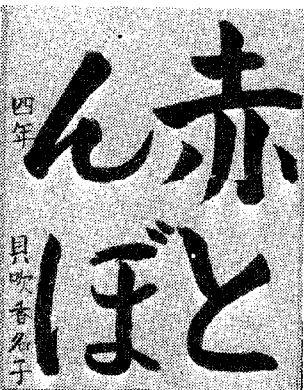 赤と
んぼ
四年 貝吹香名子